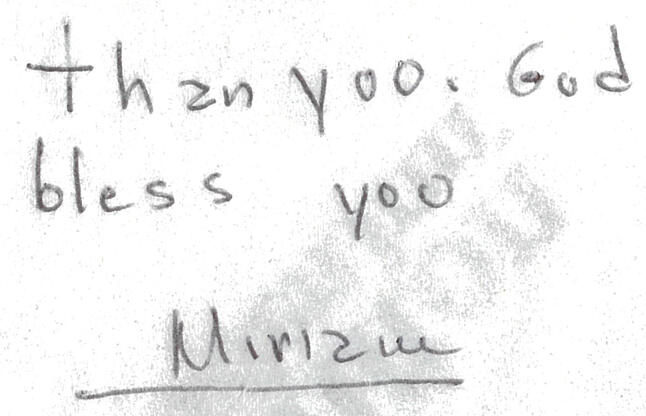 than yoo. God
bless yoo
Miriam